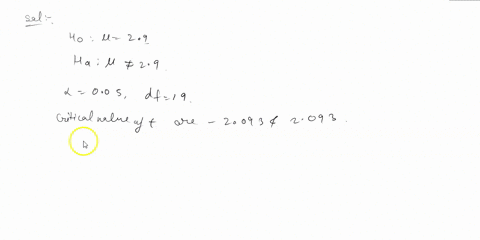 Sol:-
H0 : μ = 2.9
Ha : μ ≠ 2.9
α = 0.05, df = 19
Critical value of t are - 2.093 & 2.093.